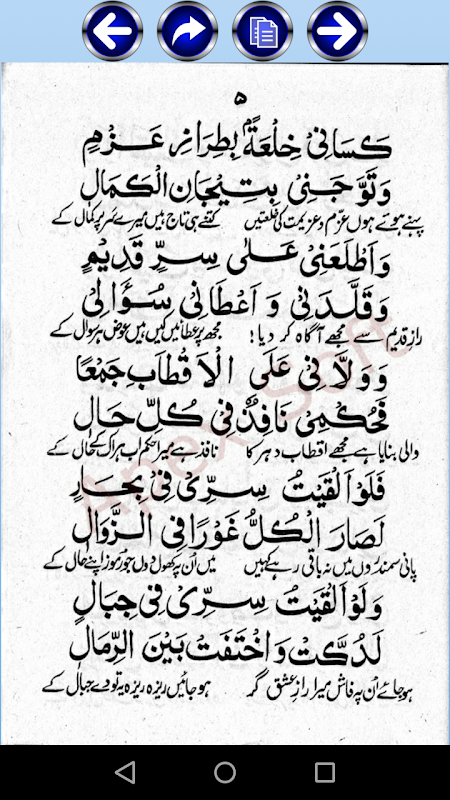 ۵
كَسَانِیْ خِلْعَةًۢ بِطِرَازِ عَزْمٍ
وَتَوَّجَنِیْ بِتِيْجَانِ الْكَمَالِ
پہنے ہوئے ہوں عزم و عزیمت کی خلعتیں کتنے ہی تاج ہیں میرے سر پر کمال کے
وَاَطْلَعَنِیْ عَلٰى سِرٍّ قَدِيْمٍ
وَقَلَّدَنِیْ وَ اَعْطَانِیْ سُؤَالِیْ
رازِ قدیم سے مجھے آگاہ کر دیا؛ مجھ پر عطائیں کیں ہیں عوض ہر سوال کے
وَ وَلَّا نِیْ عَلَى الْاَ قْطَابِ جَمْعًا
فَحُكْمِیْ نَافِذٌ فِیْ كُلِّ حَالٍ
والی بنایا ہے مجھے اقطاب دہر کا نافذ ہے میرا حکم اب ہر اک کے حال کے
فَلَوْ اَلْقَيْتُ سِرِّیْ فِیْ بِحَارٍ
لَصَارَ الْكُلُّ غَوْرًا فِی الزَّوَالِ
پانی سمندروں میں نہ باقی رہے کہیں میں اُن پر کھول دوں جو رموز اپنے حال کے
وَ لَوْ اَلْقَيْتُ سِرِّیْ فِیْ جِبَالٍ
لَدُكَّتْ وَ اخْتَفَتْ بَيْنَ الرِّمَالِ
ہو جائے اُن پہ فاش میرا رازِ عشق گر ہو جائیں ریزہ ریزہ یہ تودے جبال کے
Apex Soft